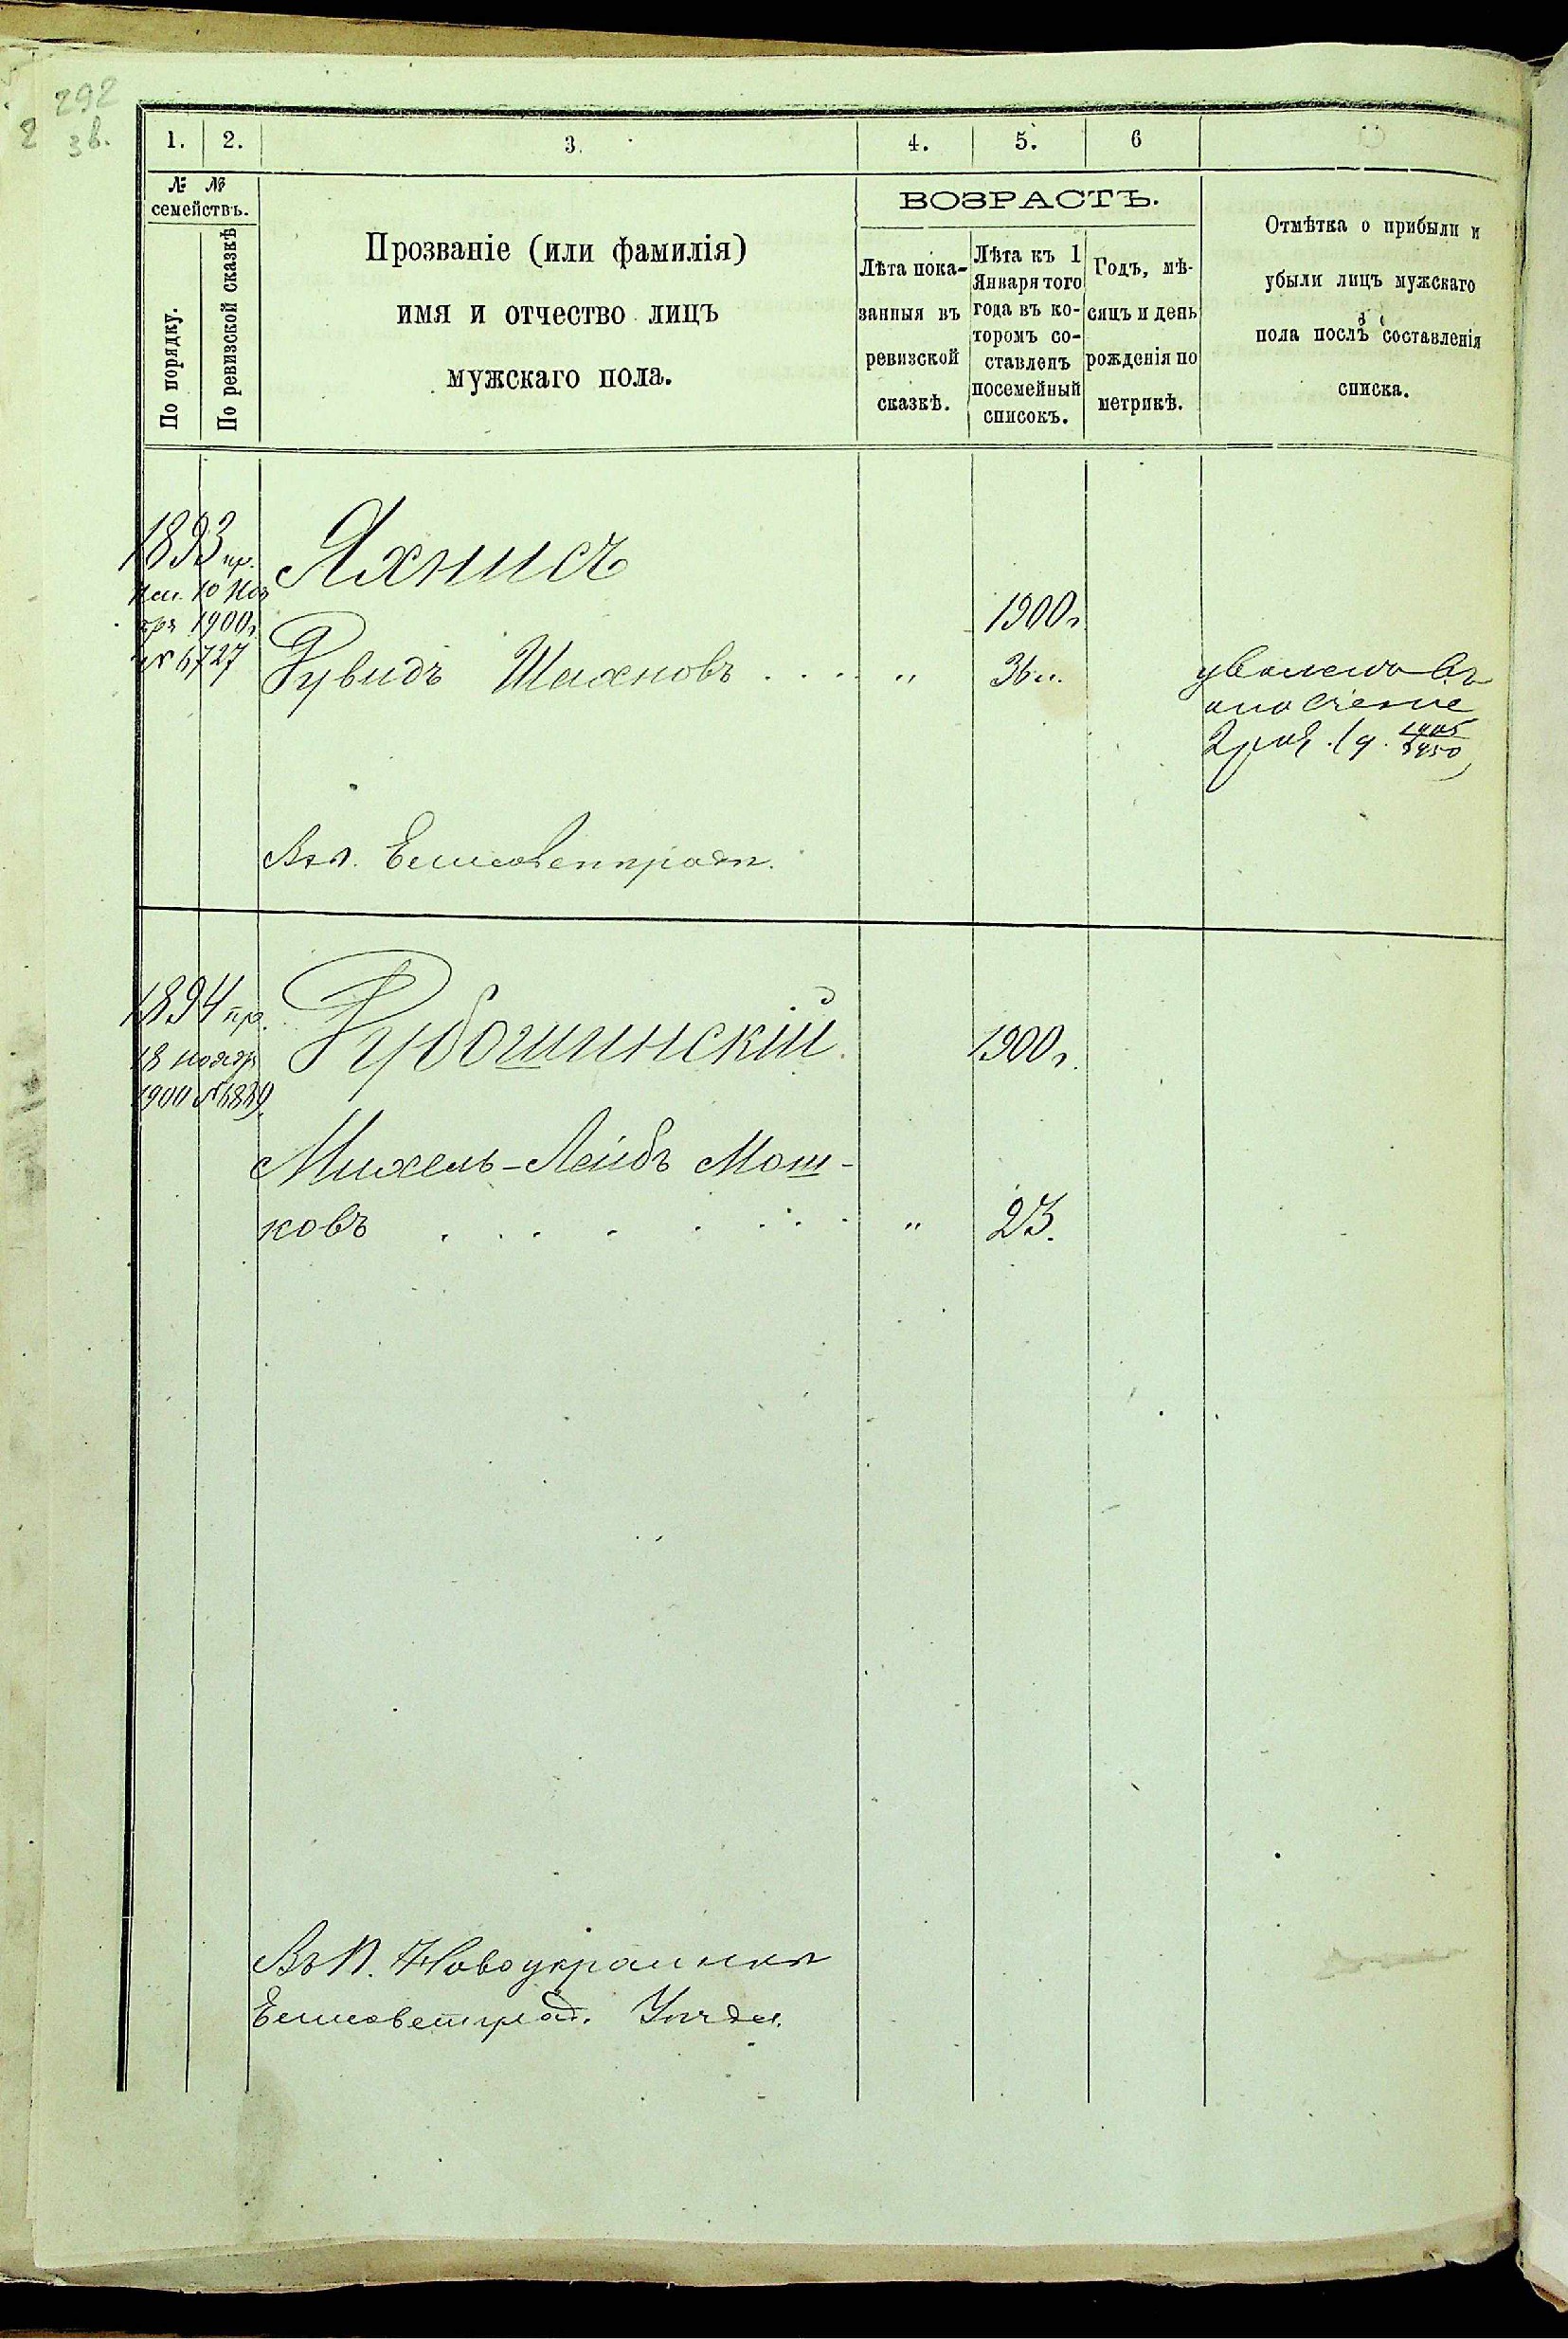 292
зв.
2
1. 2. 3. 4. 5. 6
№ №
семействъ.
По порядку.
По ревизской сказкѣ
Прозваніе (или фамилія)
имя и отчество лицъ
мужскаго пола.
ВОЗРАСТЪ.
Лѣта пока-
занныя въ
ревизской
сказкѣ.
Лѣта къ 1
Января того
года въ ко-
торомъ со-
ставленъ
посемейный
списокъ.
Годъ, мѣ-
сяцъ и день
рожденія по
метрикѣ.
Отмѣтка о прибыли и
убыли лицъ мужскаго
пола послѣ составленія
списка.
1893 пр.
10 Ноя
бря 1900г.
№ 6727
Яхнисъ
1900г.
Рувидъ Шахновъ . . . . " 36 л.
уволенъ въ
1905
3450
Въ г. Елисаветградѣ.
1894 пр.
18 ноябр
1900 № 6889.
Рубошинскій.
1900г.
Михель-Лейбъ Мош-
ковъ . . . . . . . . " 23.
Въ п. Новоукраинкѣ
Елисаветград. Уѣзда.